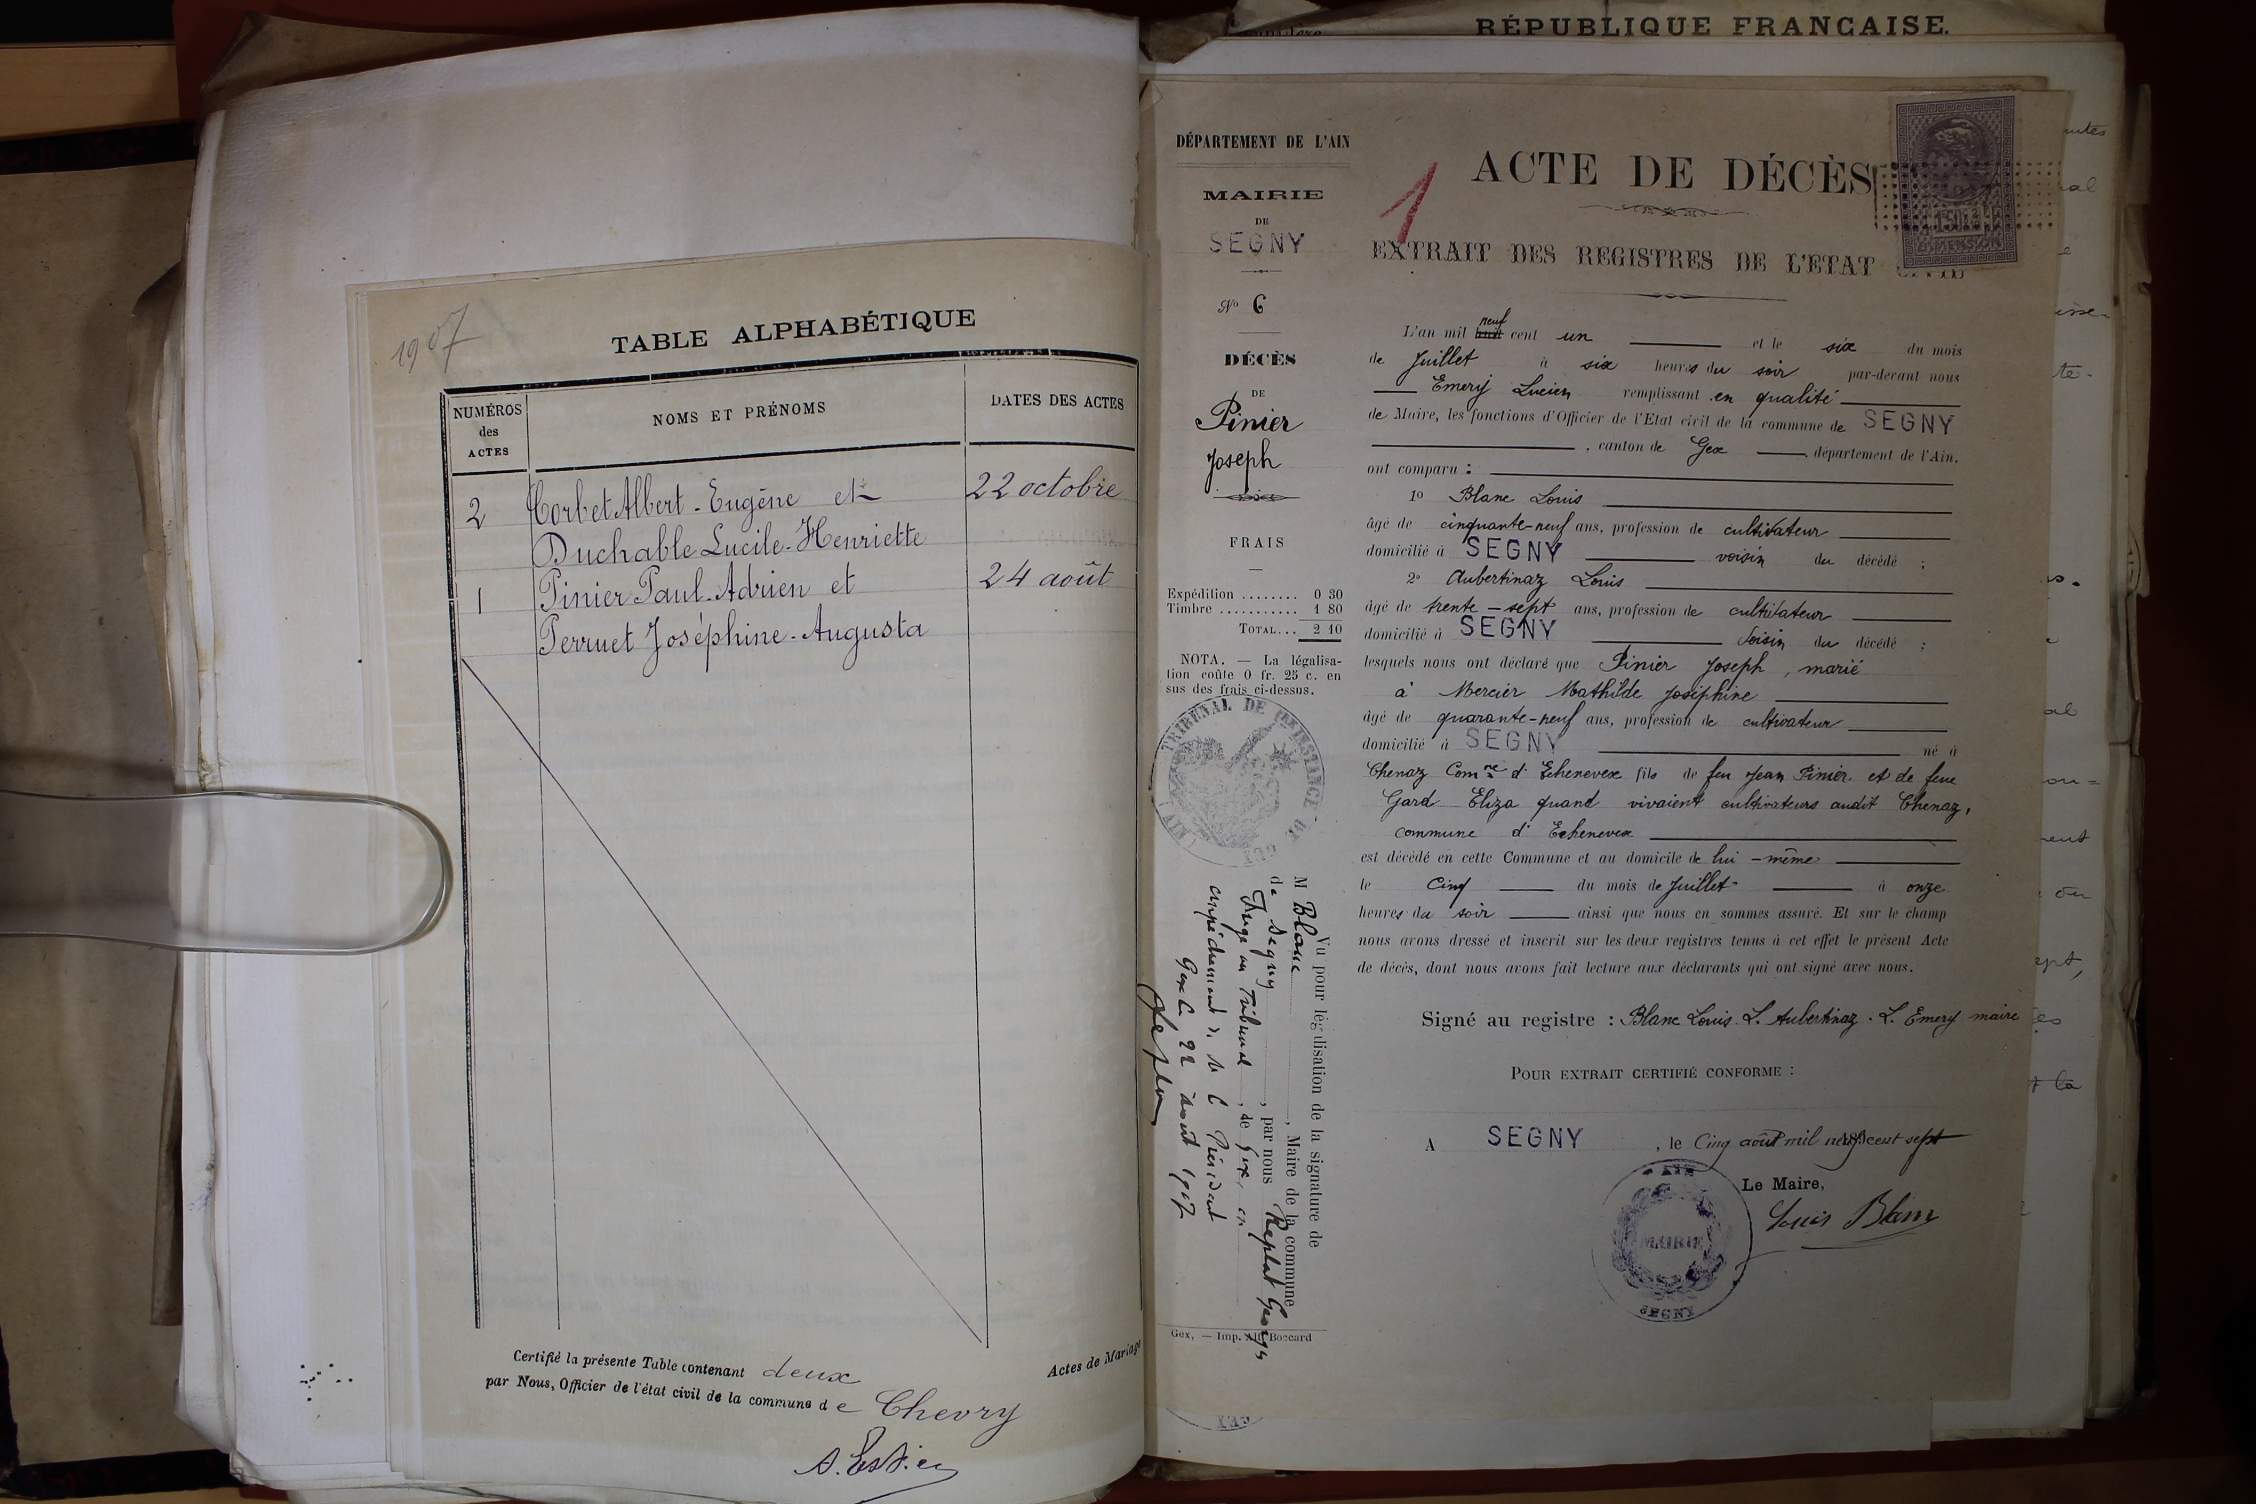 1907
TABLE ALPHABÉTIQUE
NUMÉROS
des
ACTES
NOMS ET PRÉNOMS
DATES DES ACTES
2 Corbet Albert-Eugène et 22 octobre
Duchable Lucile-Henriette
1 Pinier Paul-Adrien et 24 août
Perruet Joséphine-Augusta
Certifié la présente Table contenant deux Actes de Mariage
par Nous, Officier de l'état civil de la commune de Chevry
RÉPUBLIQUE FRANÇAISE.
DÉPARTEMENT DE L'AIN
MAIRIE
DE
SEGNY
No 6
DÉCÈS
DE
Pinier
Joseph
FRAIS
Expédition ........ 0 30
Timbre ........... 1 80
TOTAL... 2 10
NOTA. — La légalisa-
tion coûte 0 fr. 25 c. en
sus des frais ci-dessus.
TRIBUNAL DE 1ère INSTANCE DE GEX
Vu pour légalisation de la signature de
M Blanc, Maire de la commune
de Segny, par nous Replat Georges
Juge au Tribunal, de Gex, en
empêchement de M. le Président
Gex le 22 août 1907
Gex, — Imp. Alf. Boccard
1
ACTE DE DÉCÈS
EXTRAIT DES REGISTRES DE L'ETAT CIVIL
DIMENSION
L'an mil huit neuf cent un et le six du mois
de Juillet à six heures du soir par-devant nous
Emery Lucien remplissant en qualité
de Maire, les fonctions d'Officier de l'Etat civil de la commune de SEGNY
, canton de Gex, département de l'Ain.
ont comparu :
1o Blanc Louis
âgé de cinquante-neuf ans, profession de cultivateur
domicilié à SEGNY voisin du décédé ;
2o Aubertinaz Louis
âgé de trente-sept ans, profession de cultivateur
domicilié à SEGNY voisin du décédé ;
lesquels nous ont déclaré que Pinier Joseph, marié
à Mercier Mathilde Joséphine
âgé de quarante-neuf ans, profession de cultivateur
domicilié à SEGNY né à
Chenaz Comne d'Echenevex fils de feu Jean Pinier et de feue
Gard Eliza quand vivaient cultivateurs audit Chenaz,
commune d'Echenevex
est décédé en cette Commune et au domicile de lui-même
le Cinq du mois de Juillet à onze
heures du soir ainsi que nous en sommes assuré. Et sur le champ
nous avons dressé et inscrit sur les deux registres tenus à cet effet le présent Acte
de décès, dont nous avons fait lecture aux déclarants qui ont signé avec nous.
Signé au registre : Blanc Louis. L. Aubertinaz. L. Emery maire
POUR EXTRAIT CERTIFIÉ CONFORME :
A SEGNY, le Cinq août mil neuf cent sept
Le Maire,
Louis Blanc
AIN
MAIRIE
SEGNY